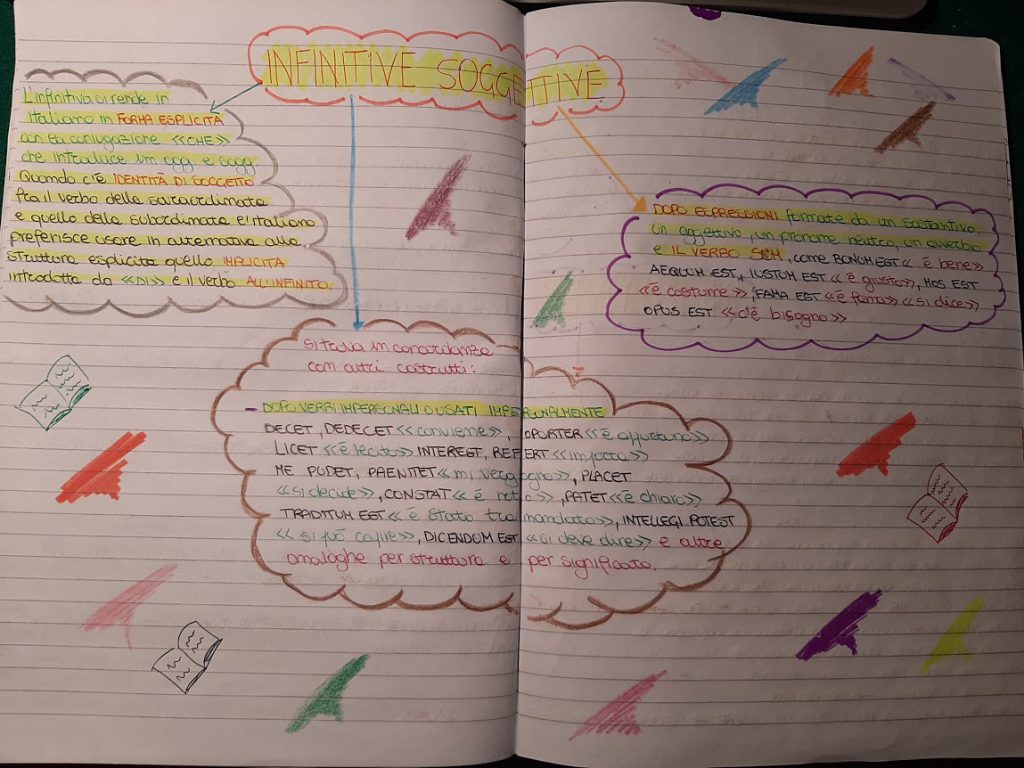 INFINITIVE SOGGETTIVE
L'infinitiva si rende in
italiano in FORMA ESPLICITA
con la coniugazione «CHE»
che introduce im ogg. e sogg
Quando c'è IDENTITÀ DI SOGGETTO
fra il verbo della sovraordinata
e quello della subordinata l'italiano
preferisce usare in alternativa alla
struttura esplicita quella IMPLICITA
introdotta da «DI» e il verbo ALL'INFINITO.
DOPO ESPRESSIONI formate da un sostantivo,
un aggettivo, un pronome neutro, un avverbio
e IL VERBO SUM, come BONUM EST «è bene»
AEQUUM EST, IUSTUM EST «è giusto», MOS EST
«è costume», FAMA EST «è fama» «si dice»
OPUS EST «c'è bisogno»
si trova in concordanza
con altri costrutti:
- DOPO VERBI IMPERSONALI O USATI IMPERSONALMENTE
DECET, DEDECET «conviene», OPORTER «è opportuno»
LICET «è lecito» INTEREST, REFERT «importa»
ME PUDET, PAENITET «mi vergogno», PLACET
«si decide», CONSTAT «è noto», PATET «è chiaro»
TRADITUM EST «è stato tramandato», INTELLEGI POTEST
«si può capire», DICENDUM EST «si deve dire» e altre
analoghe per struttura e per significato.